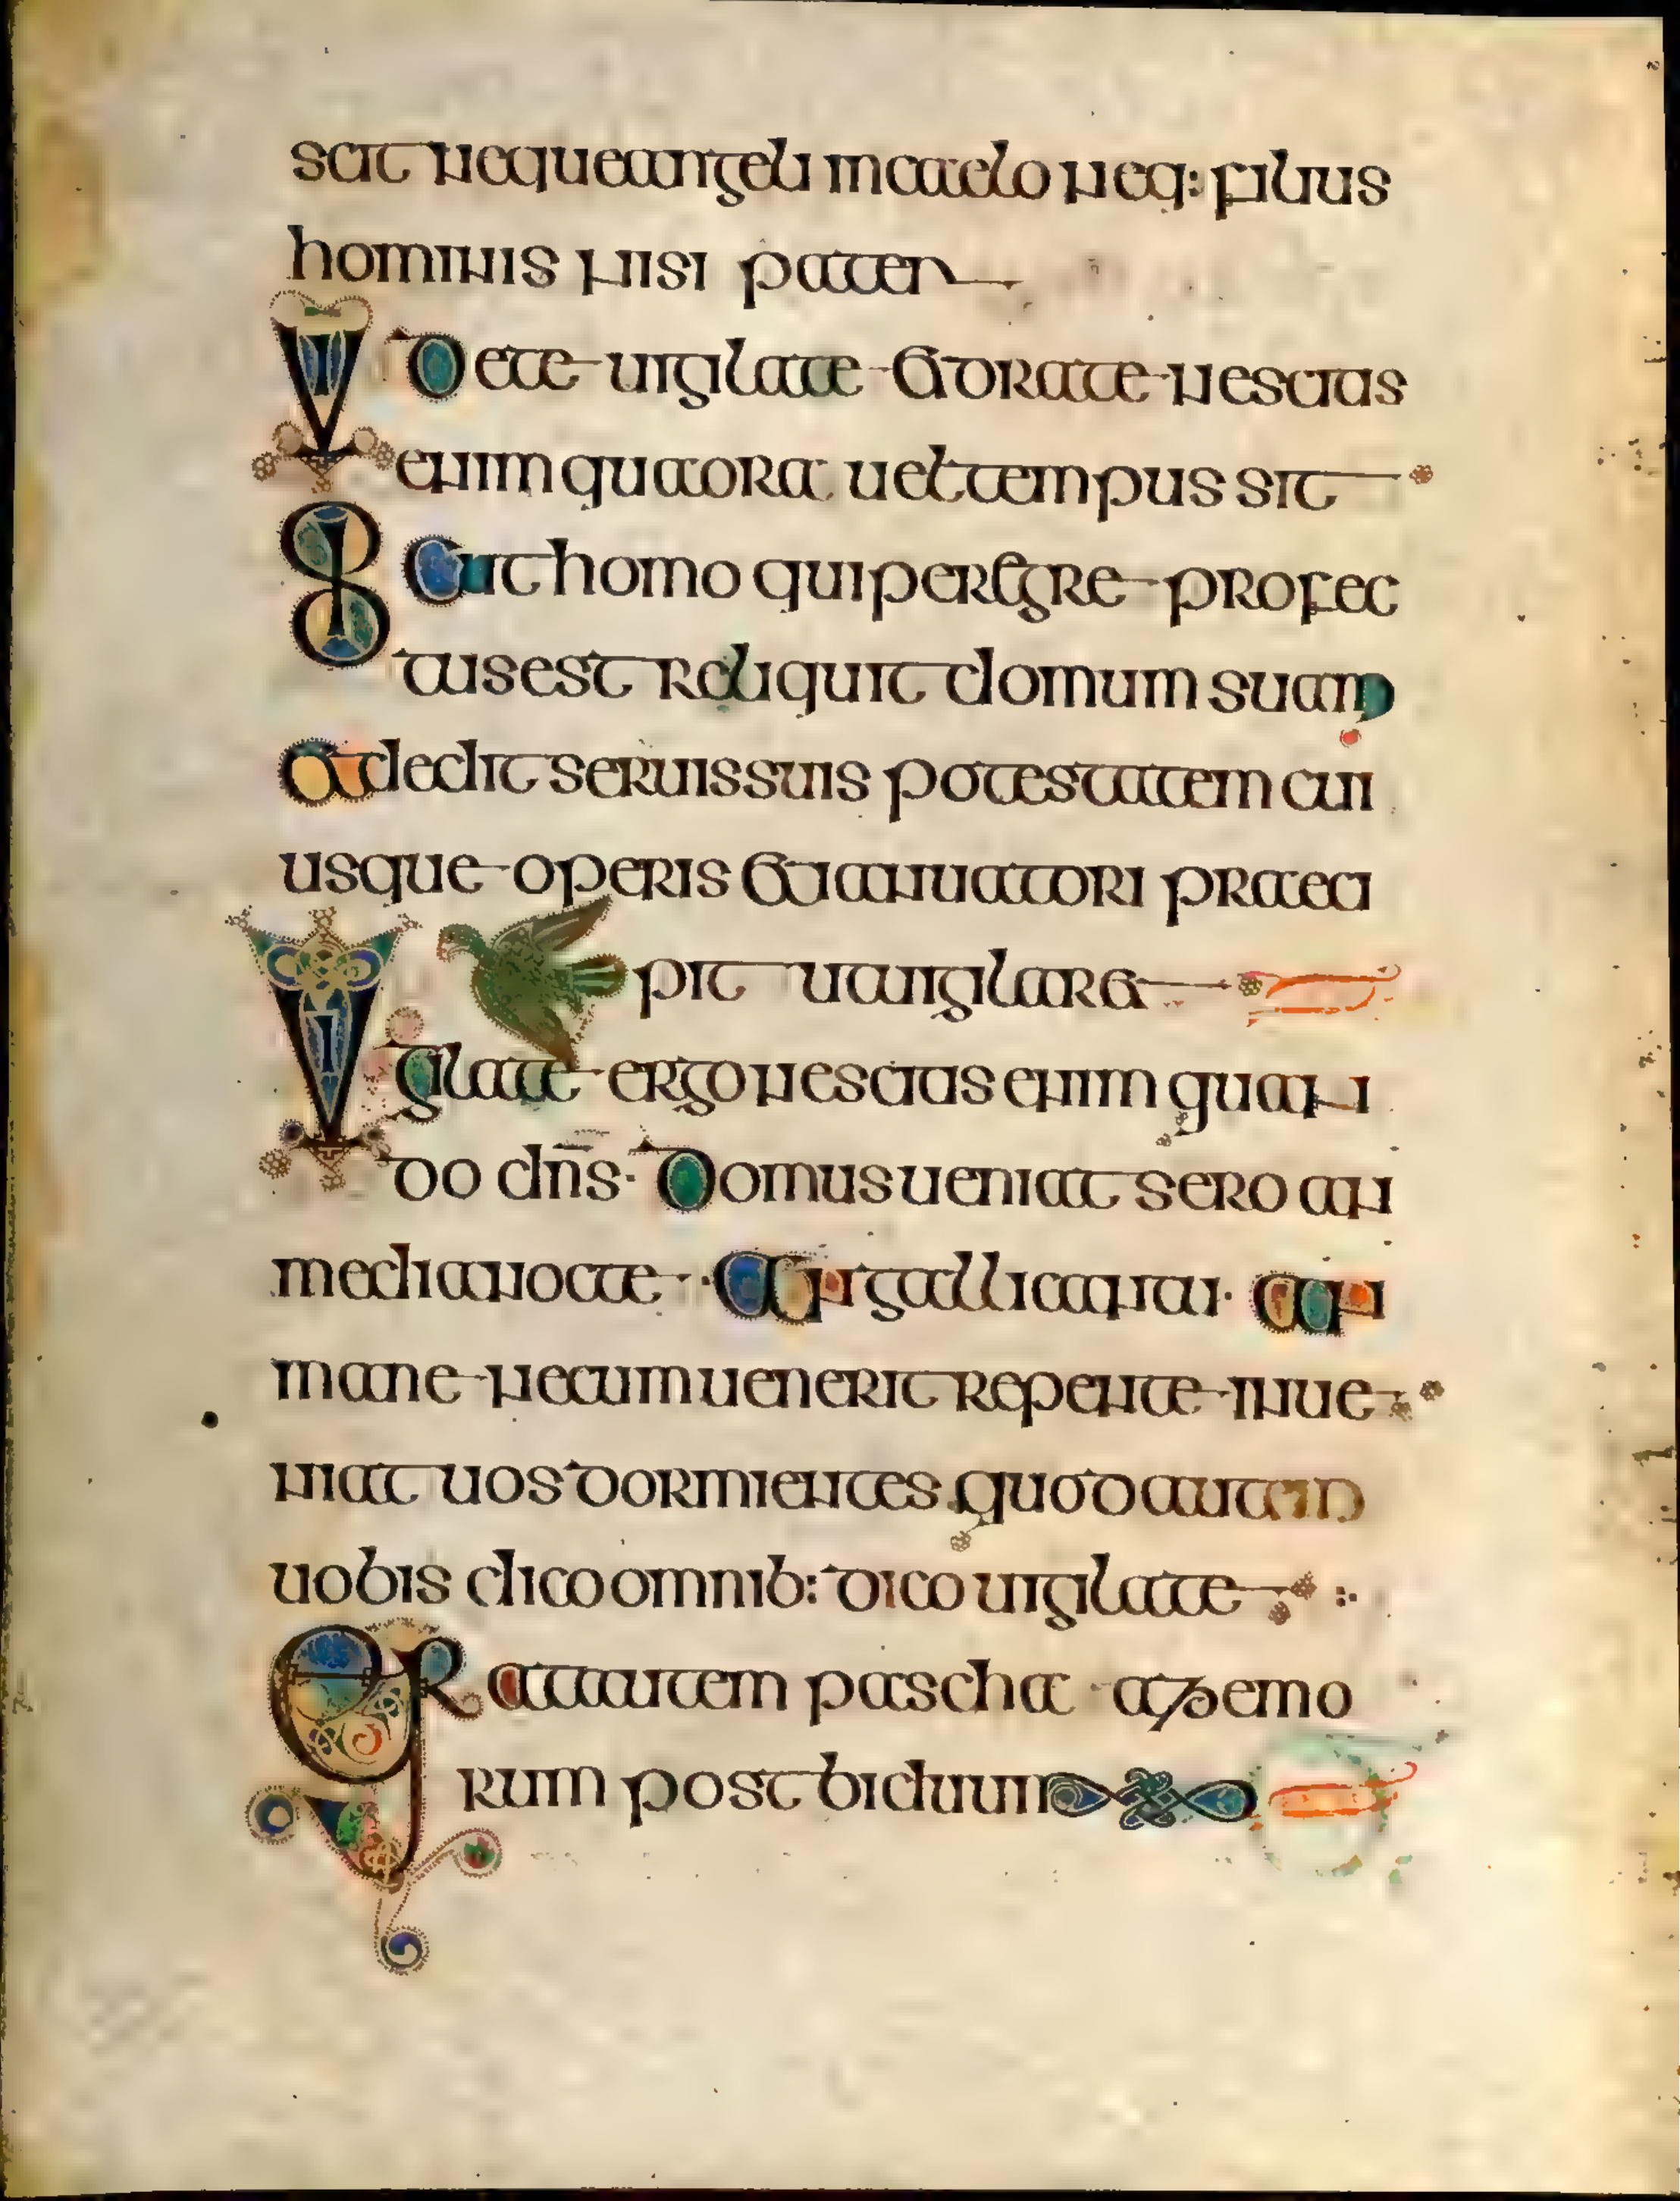 scit neque angeli in caelo neq: filius
hominis nisi pater
Videte uigilate et orate nescitis
enim qua ora uel tempus sit
Sicut homo qui peregre profec
tus est reliquit domum suam
et dedit seruis suis potestatem cui
usque operis et ianuatori praeci
pit ut uigilaret
Vigilate ergo nescitis enim quan
do dns̄· Domus ueniat sero an
media nocte · An galli cantu · an
mane ne cum uenerit repente inue
niat uos dormientes quod autem
uobis dico omnib: dico uigilate
Erat autem pascha azemo
rum post biduum